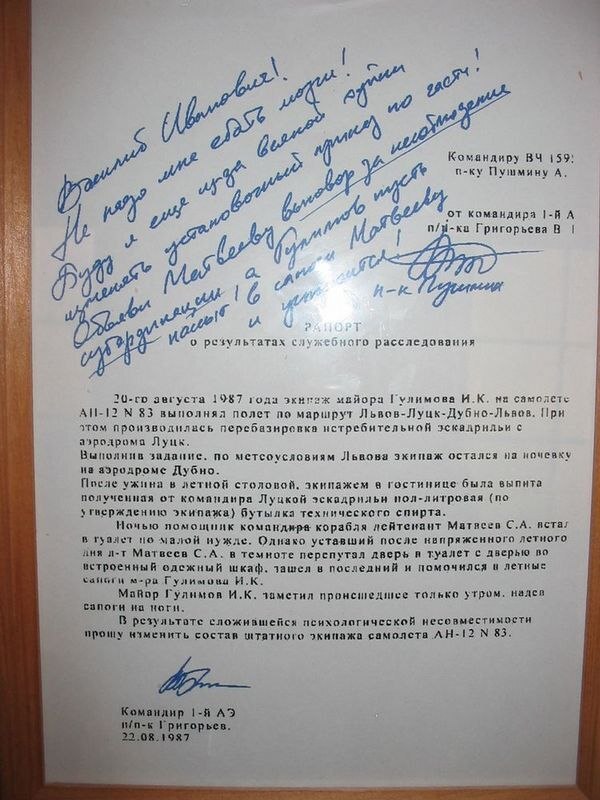 Василий Иванович!
Не надо мне ебать мозги!
Буду я еще из-за всякой хуйни
изменять установочный приказ по части!
Объяви Матвееву выговор за несоблюдение
субординации, а Гулимов пусть
нассыт в сапоги Матвееву
и успокоится!
п-к Пушмин
Командиру ВЧ 159
п-ку Пушмину А.
от командира 1-й А
п/п-ка Григорьева В
РАПОРТ
о результатах служебного расследования
20-го августа 1987 года экипаж майора Гулимова И.К. на самолете
АН-12 N 83 выполнял полет по маршрут Львов-Луцк-Дубно-Львов. При
этом производилась перебазировка истребительной эскадрильи с
аэродрома Луцк.
Выполнив задание, по метсоусловиям Львова экипаж остался на ночевку
на аэродроме Дубно.
После ужина в летной столовой, экипажем в гостинице была выпита
полученная от командира Луцкой эскадрильи пол-литровая (по
утверждению экипажа) бутылка технического спирта.
Ночью помощник командира корабля лейтенант Матвеев С.А. встал
в туалет по малой нужде. Однако уставший после напряженного летного
дня л-т Матвеев С.А. в темноте перепутал дверь в туалет с дверью во
встроенный одежный шкаф, зашел в последний и помочился в летные
сапоги м-ра Гулимова И.К.
Майор Гулимов И.К. заметил происшедшее только утром, надев
сапоги на ноги.
В результате сложившейся психологической несовместимости
прошу изменить состав штатного экипажа самолета АН-12 N 83.
Командир 1-й АЭ
п/п-к Григорьев.
22.08.1987